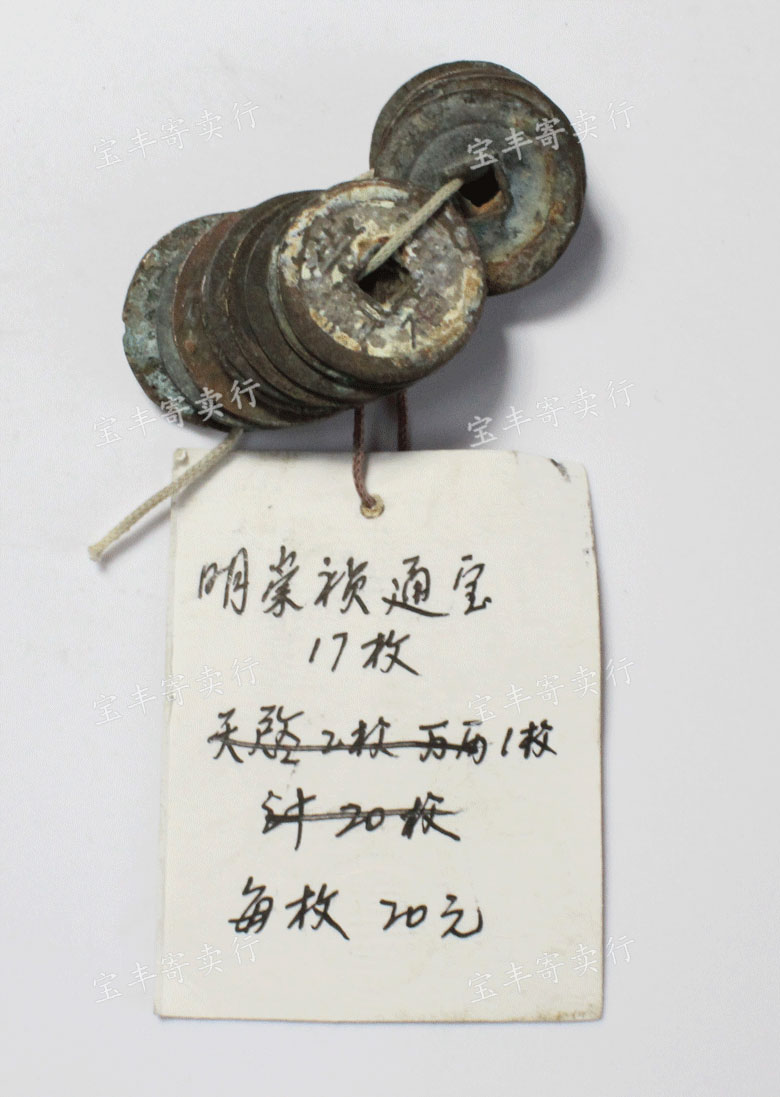 宝丰寄卖行 宝丰寄卖行
宝丰寄卖行 宝丰寄卖行
明崇祯通宝
17枚
宝丰寄卖行 宝丰寄卖行
天启2枚 万历1枚
计20枚
每枚 20元
宝丰寄卖行 宝丰寄卖行